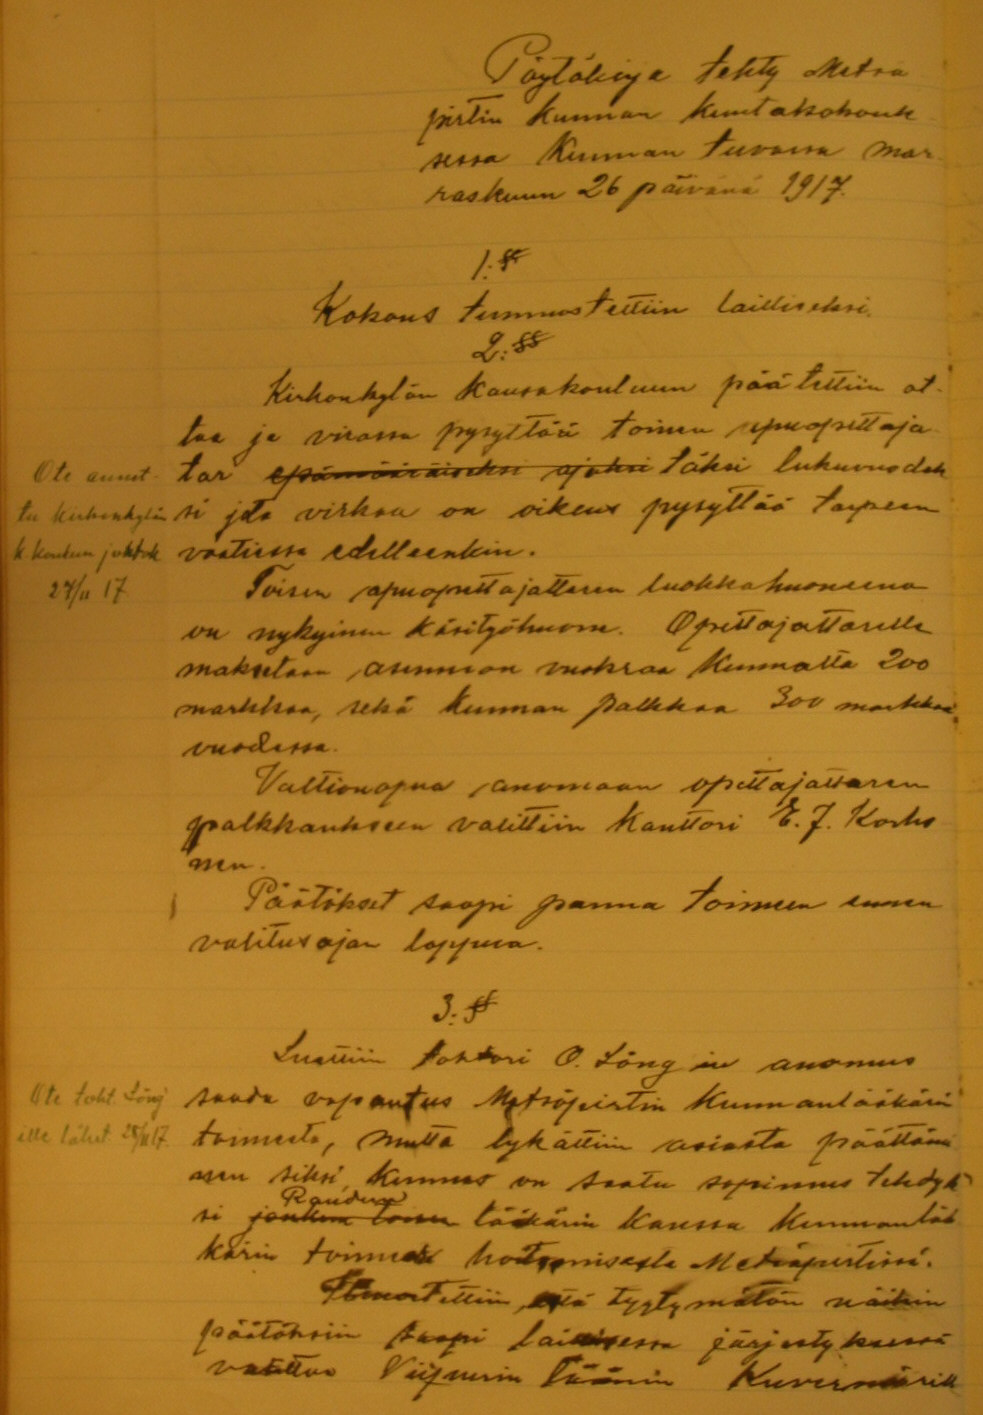 Pöytäkirja tehty Metsä
pirtin kunnan kuntakokouk
sessa Kunnan tuvassa mar
raskuun 26 päivänä 1917.
1:§
Kokous tunnustettiin lailliseksi.
2:§§
Kirkonkylän kansakouluun päätettiin ot-
taa ja virassa pysyttää toinen apuopettaja
tar epämääräiseksi ajaksi täksi lukuvuodek
si jota virkaa on oikeus pysyttää tarpeen
vaatiessa edelleenkin.
Ote annet-
tu kirkonkylän
k koulun johtok
27/11 17
Toisen apuopettajattaren luokkahuoneena
on nykyinen käsityöhuone. Opettajattarelle
maksetaan asunnon vuokraa kunnalta 200
markkaa, sekä kunnan palkkaa 300 markkaa
vuodessa.
Valtionapua anomaan opettajattaren
palkkaukseen valittiin kanttori E. J. Korho
nen.
Päätökset saapi panna toimeen ennen
valitusajan loppua.
3:§
Luettiin tohtori O. Löng in anomus
saada vapautus Metsäpirtin kunnanlääkärin
toimesta, mutta lykättiin asiasta päättämi
nen siksi, kunnes on saatu sopimus tehdyk
Raudun
si jonkun toisen lääkärin kanssa kunnanlää
kärin toimen hoitamisesta Metsäpirtissä.
Ote toht. Löng
ille lähet. 28/11 17.
Ilmoitettiin, että tyytymätön näihin
päätöksiin saapi laillisessa järjestyksessä
valittaa Viipurin läänin Kuvernöörille